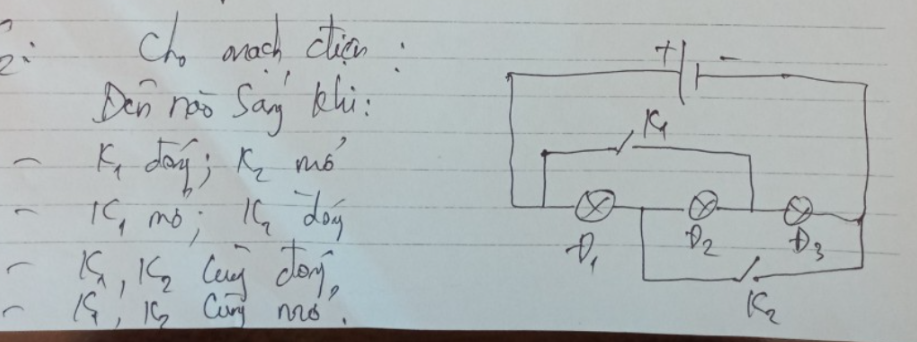 2: Cho mạch điện:
Đèn nào sáng khi:
- K₁ đóng; K₂ mở
- K₁ mở; K₂ đóng
- K₁, K₂ cùng đóng
- K₁, K₂ cùng mở.
+ -
K₁
Đ₁ Đ₂ Đ₃
K₂